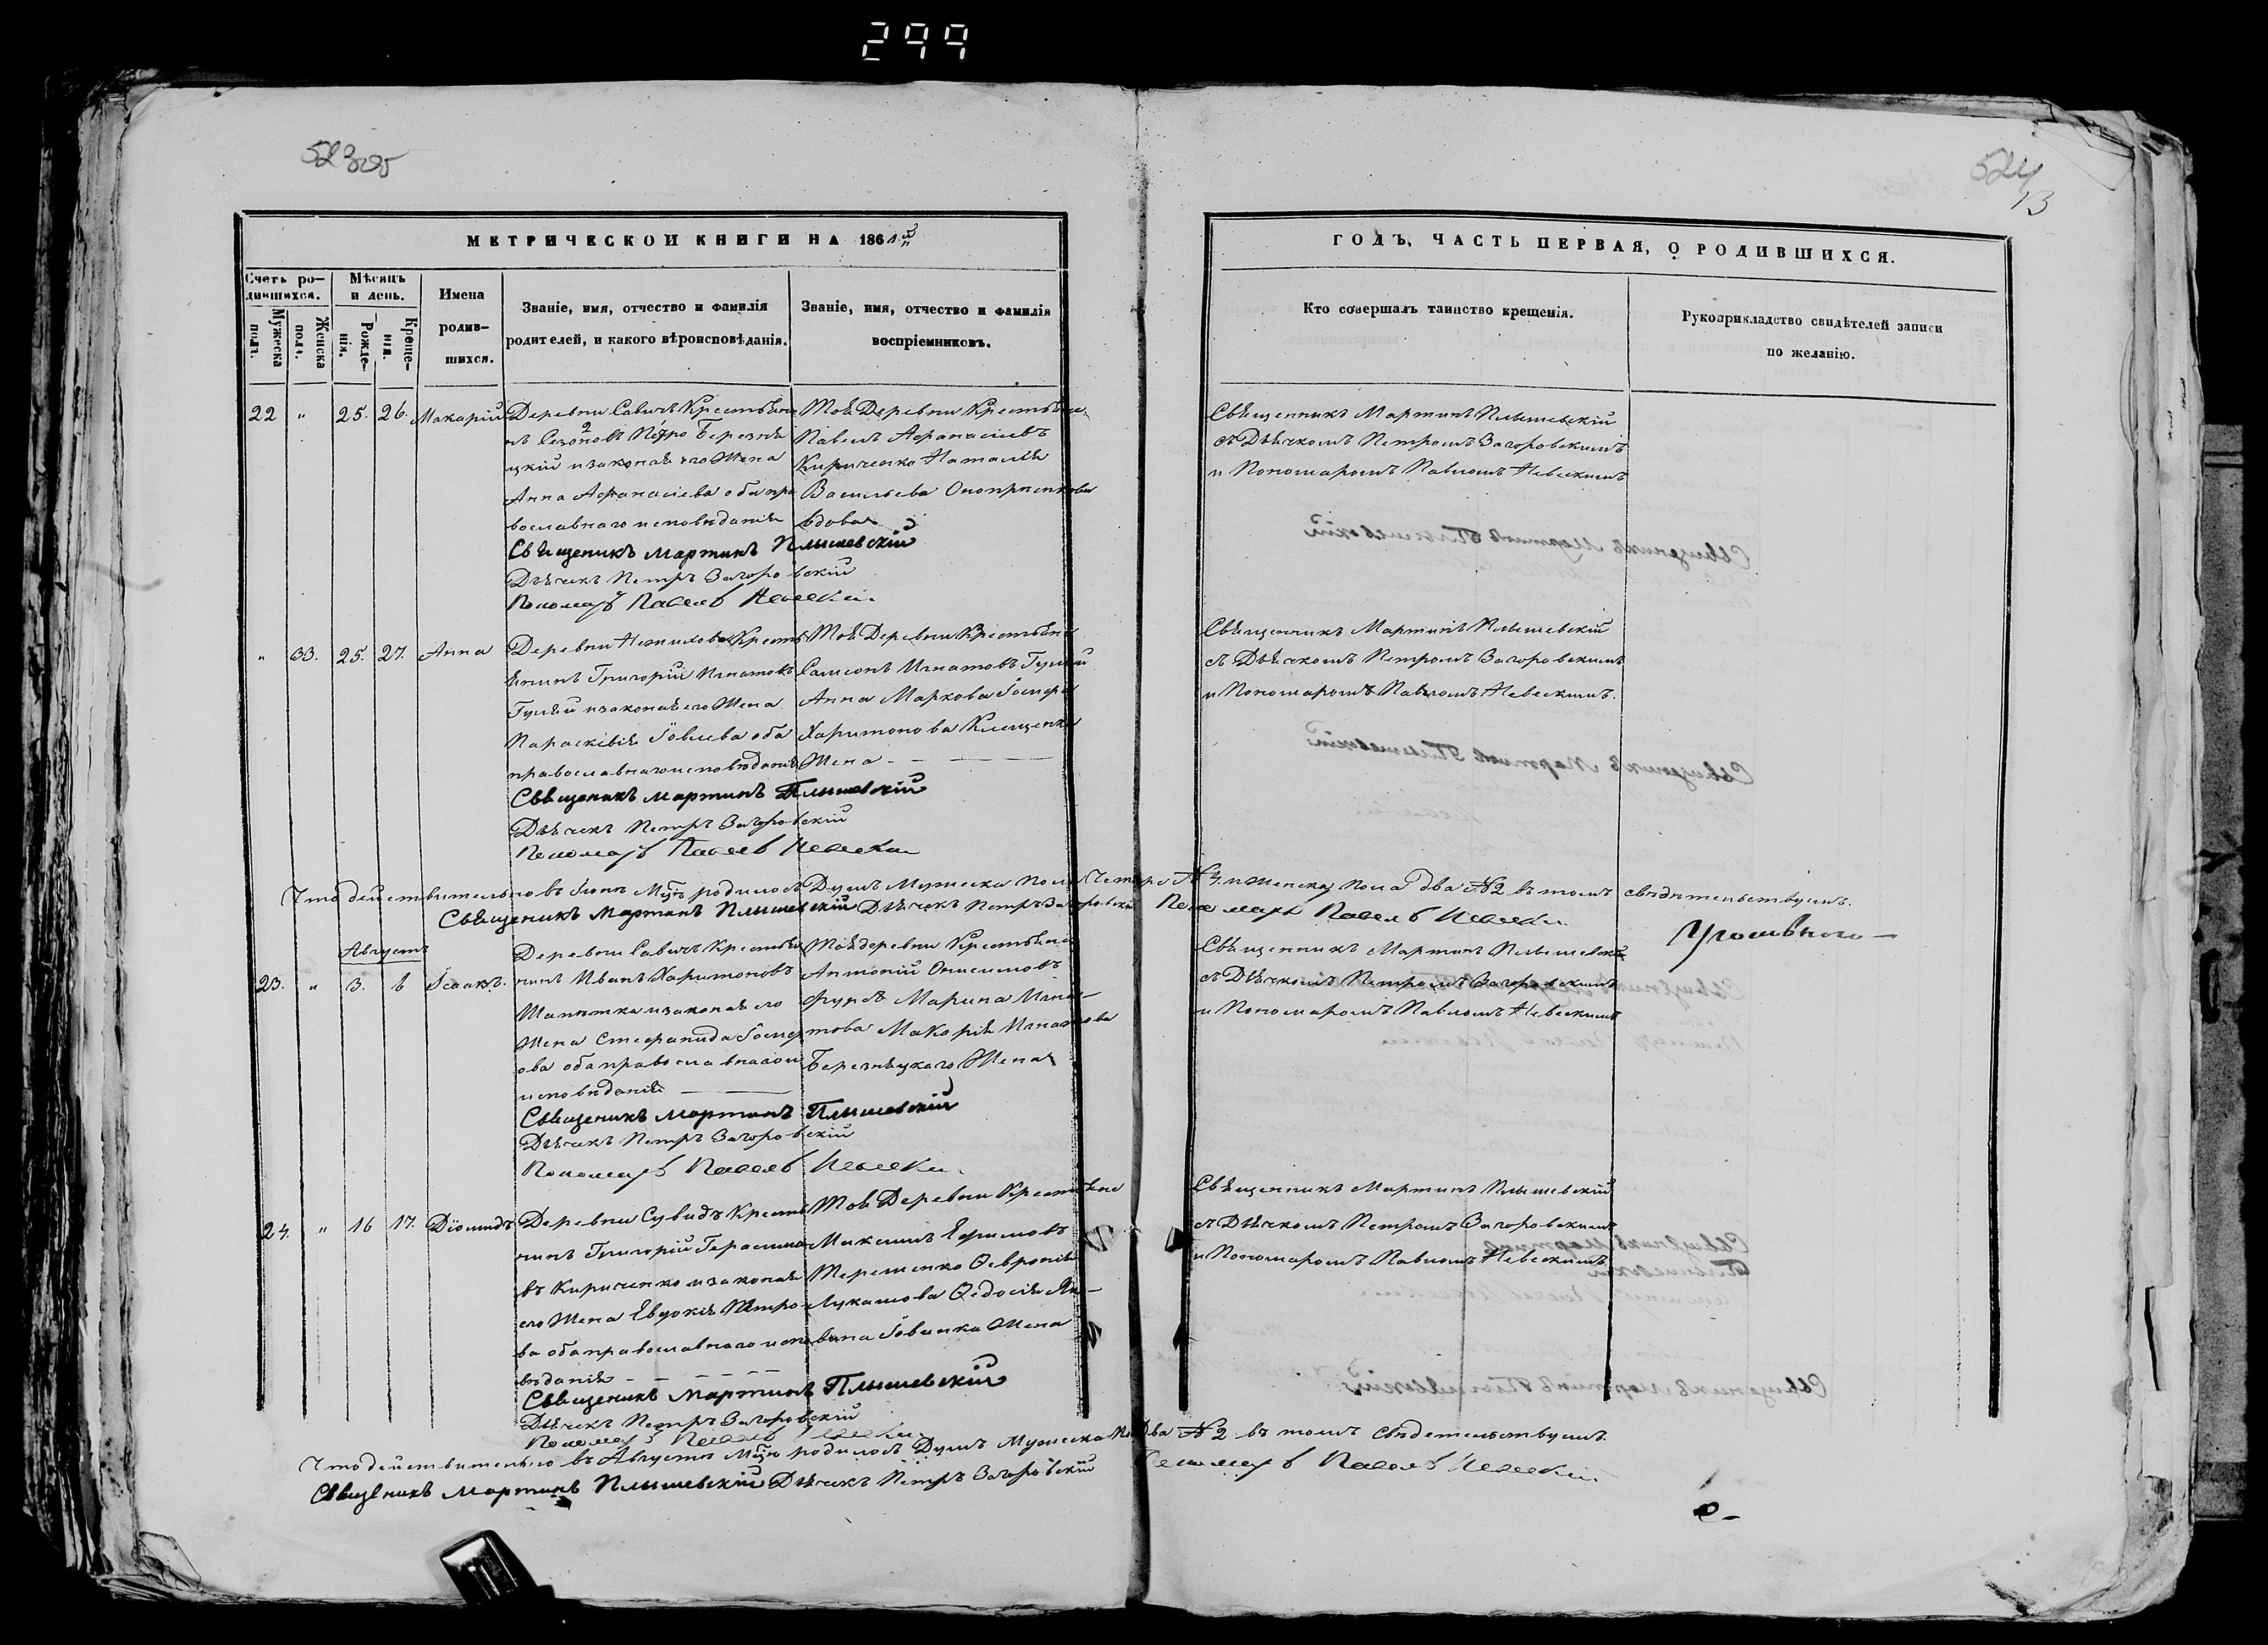 299
523об
524
13
МЕТРИЧЕСКОЙ КНИГИ НА 1861й
ГОДЪ, ЧАСТЬ ПЕРВАЯ, О РОДИВШИХСЯ.
Счетъ ро-
дившихся.
Мужеска
полъ.
Женска
пола.
Мѣсяцъ
и день.
Рожде-
нія.
Креще-
нія.
Имена
родив-
шихся.
Званіе, имя, отчество и фамилія
родителей, и какого вѣроисповѣданія.
Званіе, имя, отчество и фамилія
воспріемниковъ.
Кто совершалъ таинство крещенія.
Рукоприкладство свидѣтелей записи
по желанію.
22 " 25. 26. Макарій
Деревни Савичъ Крестьяни
нъ Сезоновъ Петро Березне
цкій и законая его Жена
Анна Афанасіева оба пра
вославнаго исповѣданія
Той Деревни Крестьяни
Павелъ Афанасіевъ
Кириченко Наталія
Васильева Оноприенкова
вдова
Священникъ Мартинъ Плышевскій
съ Дьячкомъ Петромъ Загоровскимъ
и Пономаромъ Павломъ Невскимъ
Священикъ Мартинъ Плышевскій
Дьячекъ Петръ Загоровскій
Пономарь Павелъ Невскій
" 33. 25. 27. Анна
Деревни Крестья
янинъ Григорій Игнатовъ
Гулый и законая его Жена
Параскевія Іовлева оба
православнаго исповѣданія
Той Деревни Крестьяни
Самсонъ Игнатовъ Гулый
Анна Маркова Іосифа
Харитонова Клещенка
Жена
Священникъ Мартинъ Плышевскій
съ Дьячкомъ Петромъ Загоровскимъ
и Пономаромъ Павломъ Невскимъ.
Священикъ Мартинъ Плышевскій
Дьячекъ Петръ Загоровскій
Пономарь Павелъ Невскій
Что действительно въ Іюлѣ М-цѣ родилось Душъ Мужеска пола Четыре №4. и Женска пола два №2 въ томъ свѣдѣтельствуемъ.
Священикъ Мартинъ Плышевскій Дьячекъ Петръ Загоровскій Пономарь Павелъ Невскій
Августъ
23. " 3. 6 Ісаакъ.
Деревни Савичъ Крестьяни
нинъ Иванъ Харитоновъ
и законая его
Жена Стефанида Іосиф
ова оба православнаго
исповѣданія
Той деревни Крестьяни
Антоній Онисимовъ
Фурсъ Марина Игна-
това Макарія Игнатова
Березнецкаго Жена
Священникъ Мартинъ Плышевскій
съ Дьячкомъ Петромъ Загоровскимъ
и Пономаромъ Павломъ Невскимъ
Священикъ Мартинъ Плышевскій
Дьячекъ Петръ Загоровскій
Пономарь Павелъ Невскій
24. " 16 17. Діомидъ
Деревни Сувидъ Крестья
нинъ Григорій Герасимо
въ Кириченко и законая
его Жена Евдокія Петро
ва оба православнаго испо
вѣданія
Той Деревни Крестьяне
Максимъ Ефимовъ
Терешенко Февронія
Лукашова Федосія Як-
Іовинка Жена
Священникъ Мартинъ Плышевскій
съ Дьячкомъ Петромъ Загоровскимъ
и Пономаромъ Павломъ Невскимъ
Священикъ Мартинъ Плышевскій
Дьячекъ Петръ Загоровскій
Пономарь Павелъ Невскій
Что действительно въ Августѣ М-цѣ родилось Душъ Мужеска по. Два №2 въ томъ свѣдетельствуемъ.
Священикъ Мартинъ Плышевскій Дьячекъ Петръ Загоровскій Пономарь Павелъ Невскій